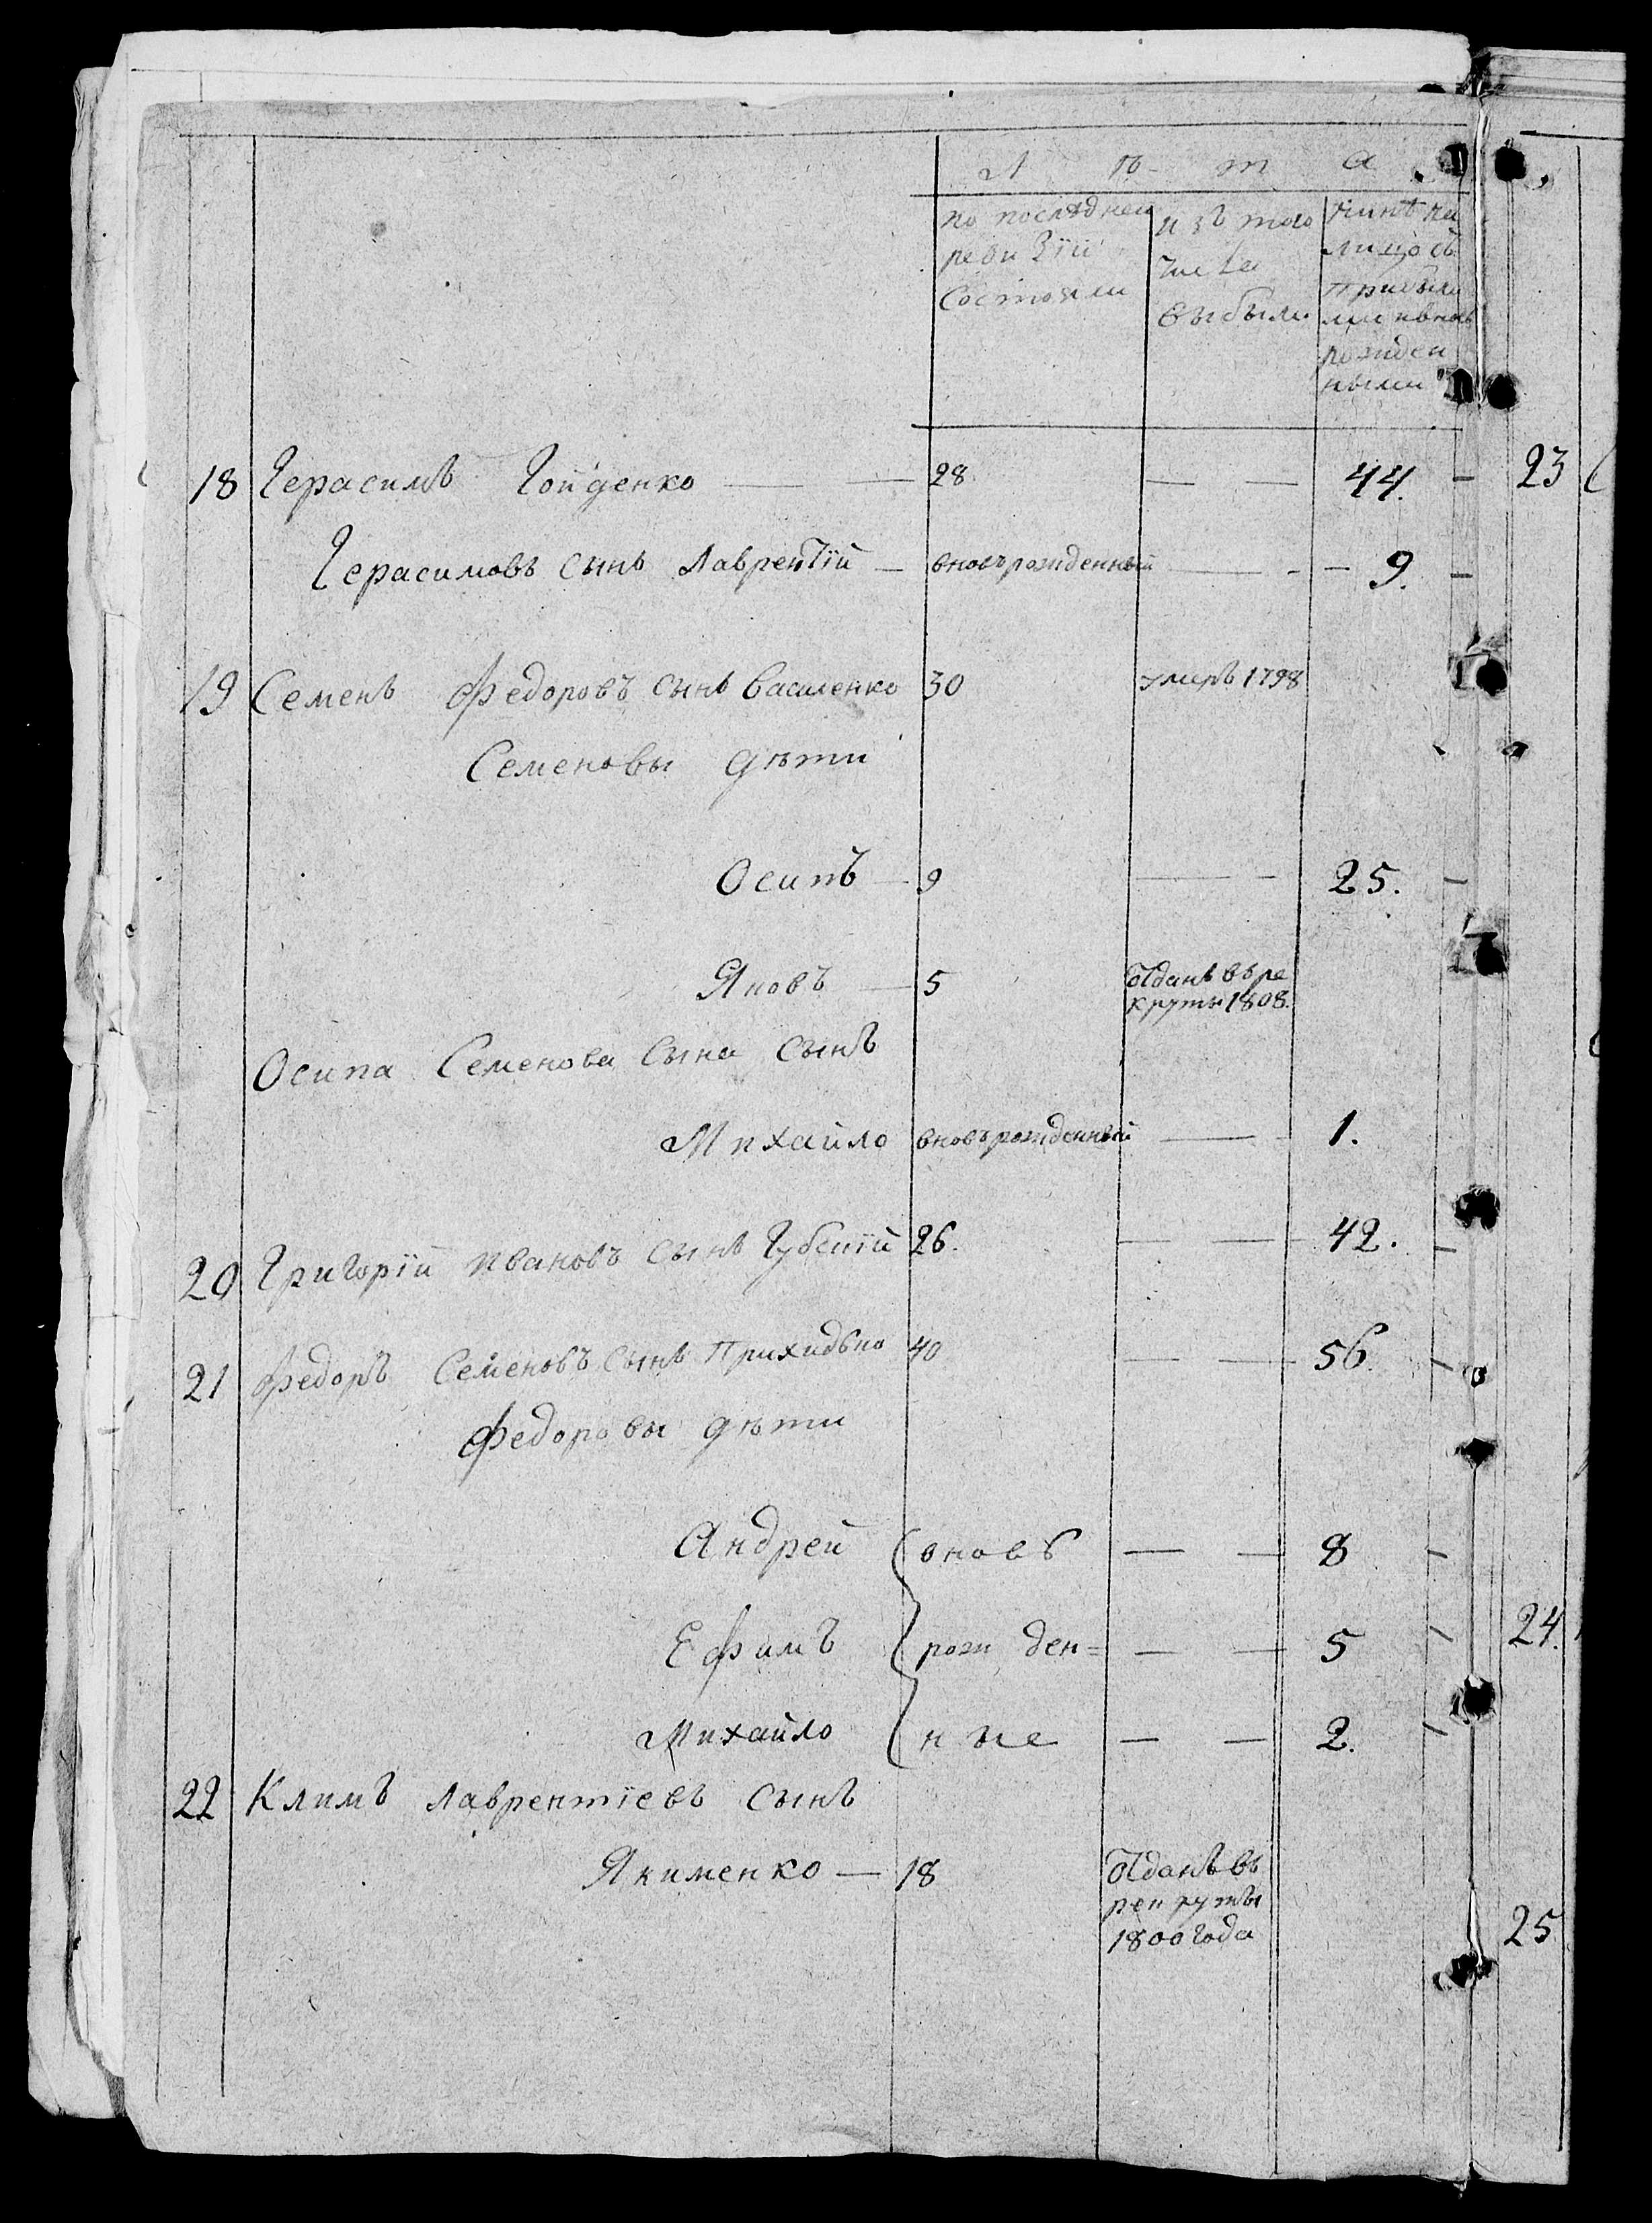 Л ѣ т а
по последней ревизіи состояли
изъ того числа выбыли
нынѣ на лицо съ прибылыми и вновь рожденными
18 Герасимъ Гойденко — — 28 — — 44. —
Герасимовъ сынъ Лаврентій — вновърожденный — - - 9. —
19 Семенъ Федоровъ сынъ Василенко 30 умеръ 1798
Семеновы дѣти
Осипъ — 9 — - 25. —
Яковъ — 5 отданъ въ ре
круты 1808.
Осипа Семенова сына сынъ
Михайло вновърожденный — - 1.
20 Григорій Ивановъ сынъ Губскій 26. — — 42. —
21 Федоръ Семеновъ сынъ Приходько 40 — — 56. —
Федоровы дѣти
Андрей вновь — — 8 —
Ефимъ рожден= — — 5 —
Михайло ные — — 2. —
22 Климъ Лаврентіевъ сынъ
Якименко — 18 отданъ въ
рекруты
1800 года
23
24.
25